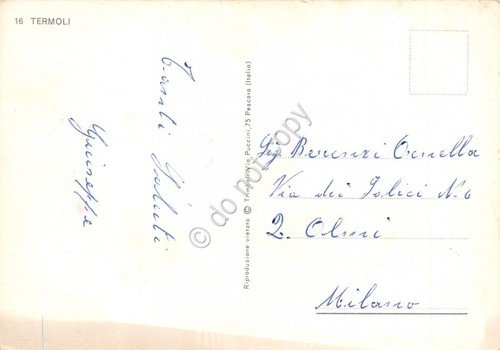 16 TERMOLI
Tanti Saluti
Giuseppe
Riproduzione vietata © Trimboli, Via Puccini, 75 Pescara (Italia)
© do not copy
Sig Berenzi Ornella
Via dei Salici N. 6
2. Olmi
Milano